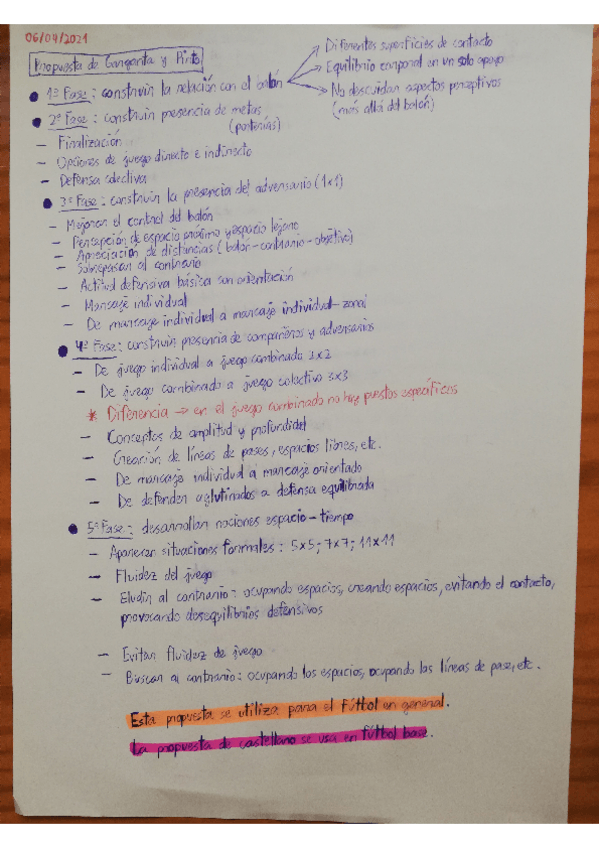 06/04/2021
Propuesta de Garganta y Pinto
Diferentes superficies de contacto
Equilibrio corporal en un solo apoyo
No descuidar aspectos perceptivos
(más allá del balón)
● 1ª Fase: construir la relación con el balón
● 2ª Fase: construir presencia de metas
(porterías)
- Finalización
- Opciones de juego directo e indirecto
- Defensa colectiva
● 3ª Fase: construir la presencia del adversario (1x1)
- Mejorar el control del balón
- Percepción de espacio próximo y espacio lejano
- Apreciación de distancias (balón-contrario-objetivo)
- Sobrepasar al contrario
- Actitud defensiva básica con orientación
- Marcaje individual
- De marcaje individual a marcaje individual-zonal
● 4ª Fase: construir presencia de compañeros y adversarios
- De juego individual a juego combinado 2x2
- De juego combinado a juego colectivo 3x3
* Diferencia → en el juego combinado no hay puestos específicos
- Conceptos de amplitud y profundidad
- Creación de líneas de pases, espacios libres, etc.
- De marcaje individual a marcaje orientado
- De defender aglutinados a defensa equilibrada
● 5ª Fase: desarrollar nociones espacio-tiempo
- Aparecen situaciones formales: 5x5; 7x7; 11x11
- Fluidez del juego
- Eludir al contrario: ocupando espacios, creando espacios, evitando el contacto,
provocando desequilibrios defensivos
- Evitar fluidez de juego
- Buscar al contrario: ocupando los espacios, ocupando las líneas de pase, etc.
Esta propuesta se utiliza para el fútbol en general.
La propuesta de castellano se usa en fútbol base.